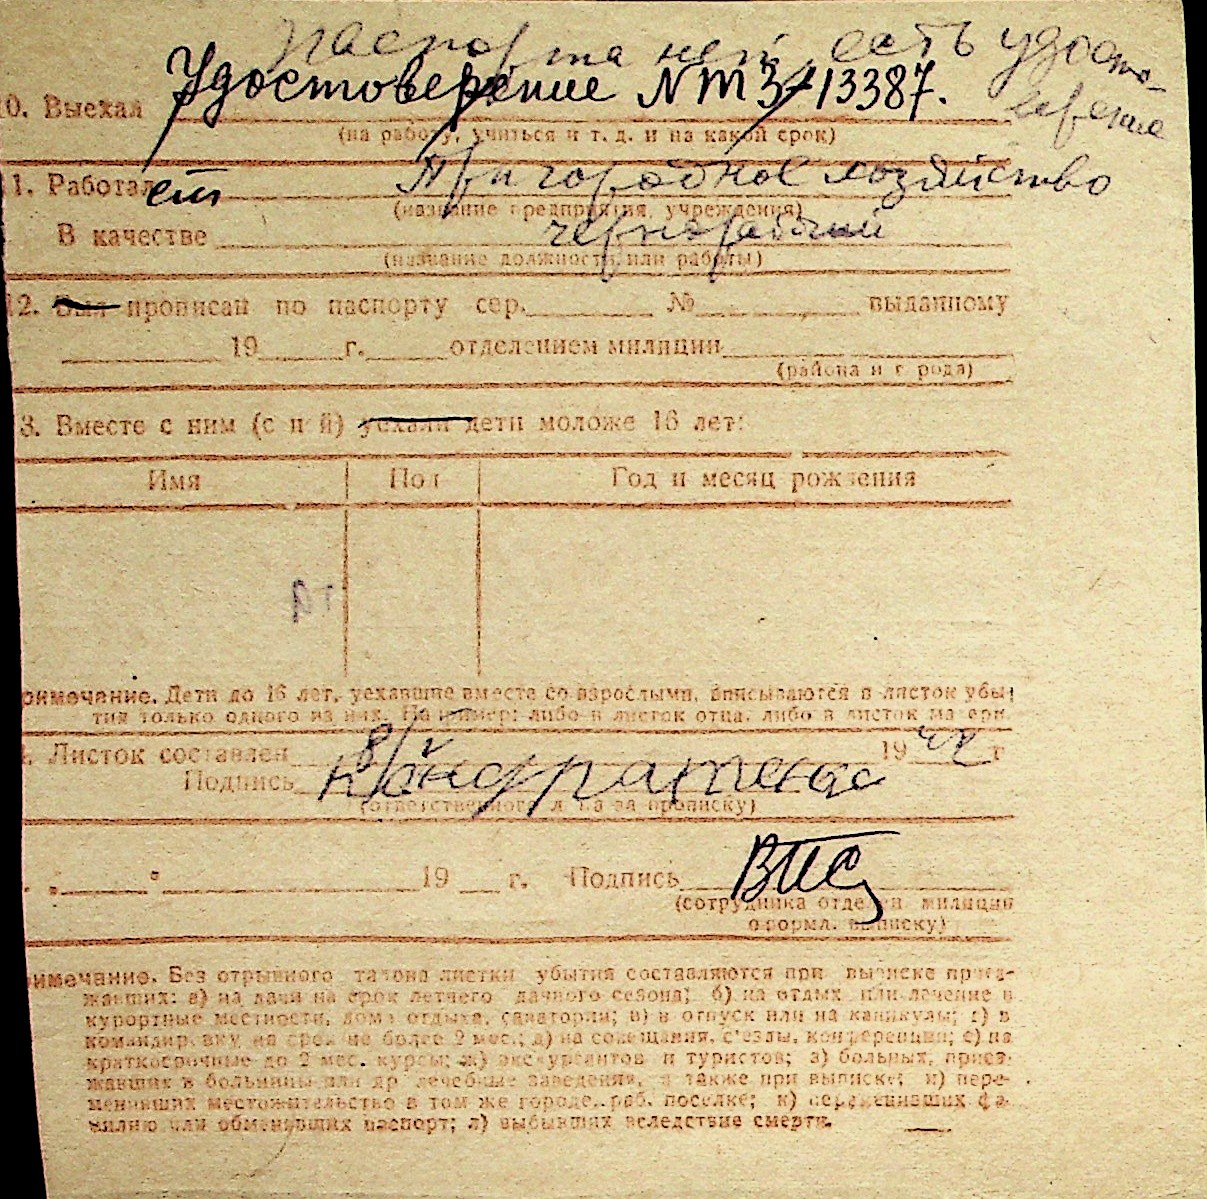 Паспорта нет, есть удосто-
верение
Удостоверение № ТЗ-13387.
10. Выехал
(на работу, учиться и т. д. и на какой срок)
11. Работал ет Пригородное хозяйство
(название предприятия, учреждения)
В качестве чернорабочий
(название должности или работы)
12. Был прописан по паспорту сер. № выданному
19 г. отделением милиции
(района и города)
13. Вместе с ним (с ней) уехали дети моложе 16 лет:
Имя Пол Год и месяц рождения
римечание. Дети до 16 лет, уехавшие вместе со взрослыми, вписываются в листок убы-
тия только одного из них. Например: либо в листок отца, либо в листок матери.
Листок составлен 8/ 19 г
Подпись Кондратенко
(ответственного лица за прописку)
" " 19 г. Подпись
(сотрудника отделен. милиции
оформл. выписку)
имечание. Без отрывного талона листки убытия составляются при выписке приез-
жавших: а) на дачи на срок летнего дачного сезона; б) на отдых или лечение в
курортные местности, дома отдыха, санатории; в) в отпуск или на каникулы; г) в
командировку на срок не более 2 мес.; д) на совещания, с'езды, конференции; е) на
краткосрочные до 2 мес. курсы; ж) экскурсантов и туристов; з) больных, приез-
жавших в больницы или др лечебные заведения, а также при выписке; и) пере-
менивших местожительство в том же городе, раб. поселке; к) переменивших фа-
милию или обменявших паспорт; л) выбывших вследствие смерти.